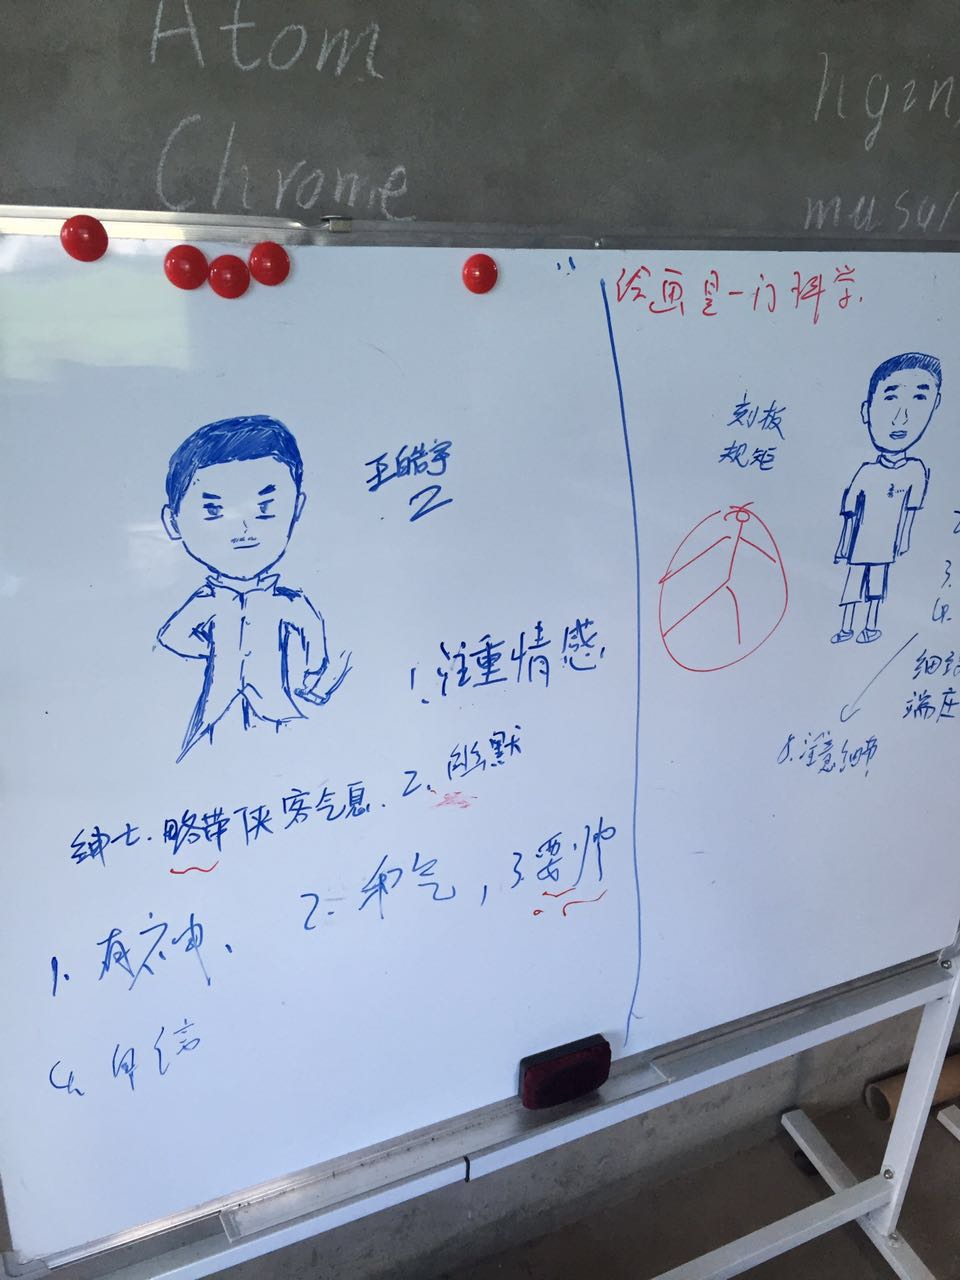 Atom
Chrome
绘画是一门科学.
王皓宇
2
刻板
规矩
1.注重情感
2.幽默
绅士.略带侠客气息.
1.有神、
2.和气,
3.要帅
4.自信
3.
4.
端庄
5.注意细节